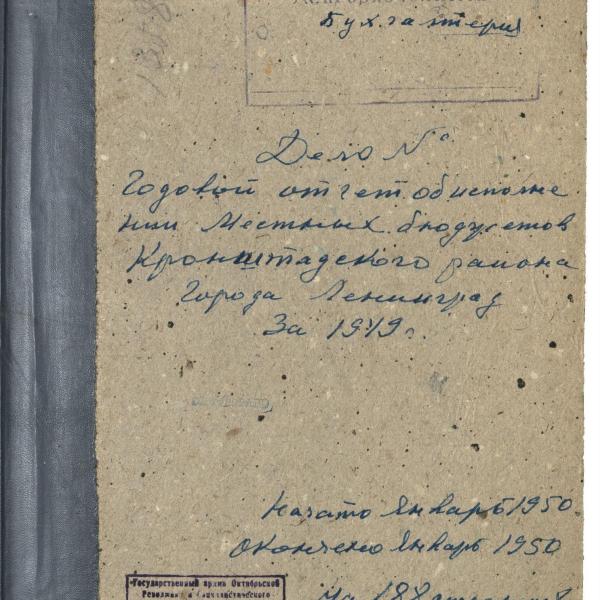 Бухгалтерия
Дело №
Годовой отчет об исполне
нии местных бюджетов
Кронштадского района
Города Ленинград
За 1949 г.
Начато Январь 1950
Окончено Январь 1950
Государственный архив Октябрьской
Революции и социалистического
На 188